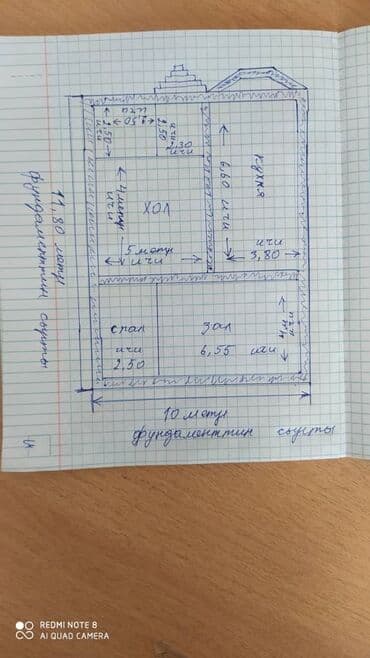 ичи
1,50
1,50
ичи
1,50
ичи
2,30
ичи
кухня
6,60 ичи
4 метр
ичи
ХОЛ
5 метр
ичи
ичи
3,80
11,80 метр
фундаменттин сырты
спал
ичи
2,50
Зал
6,55 ичи
4 м
ичи
10 метр
фундаменттин сырты
REDMI NOTE 8
AI QUAD CAMERA